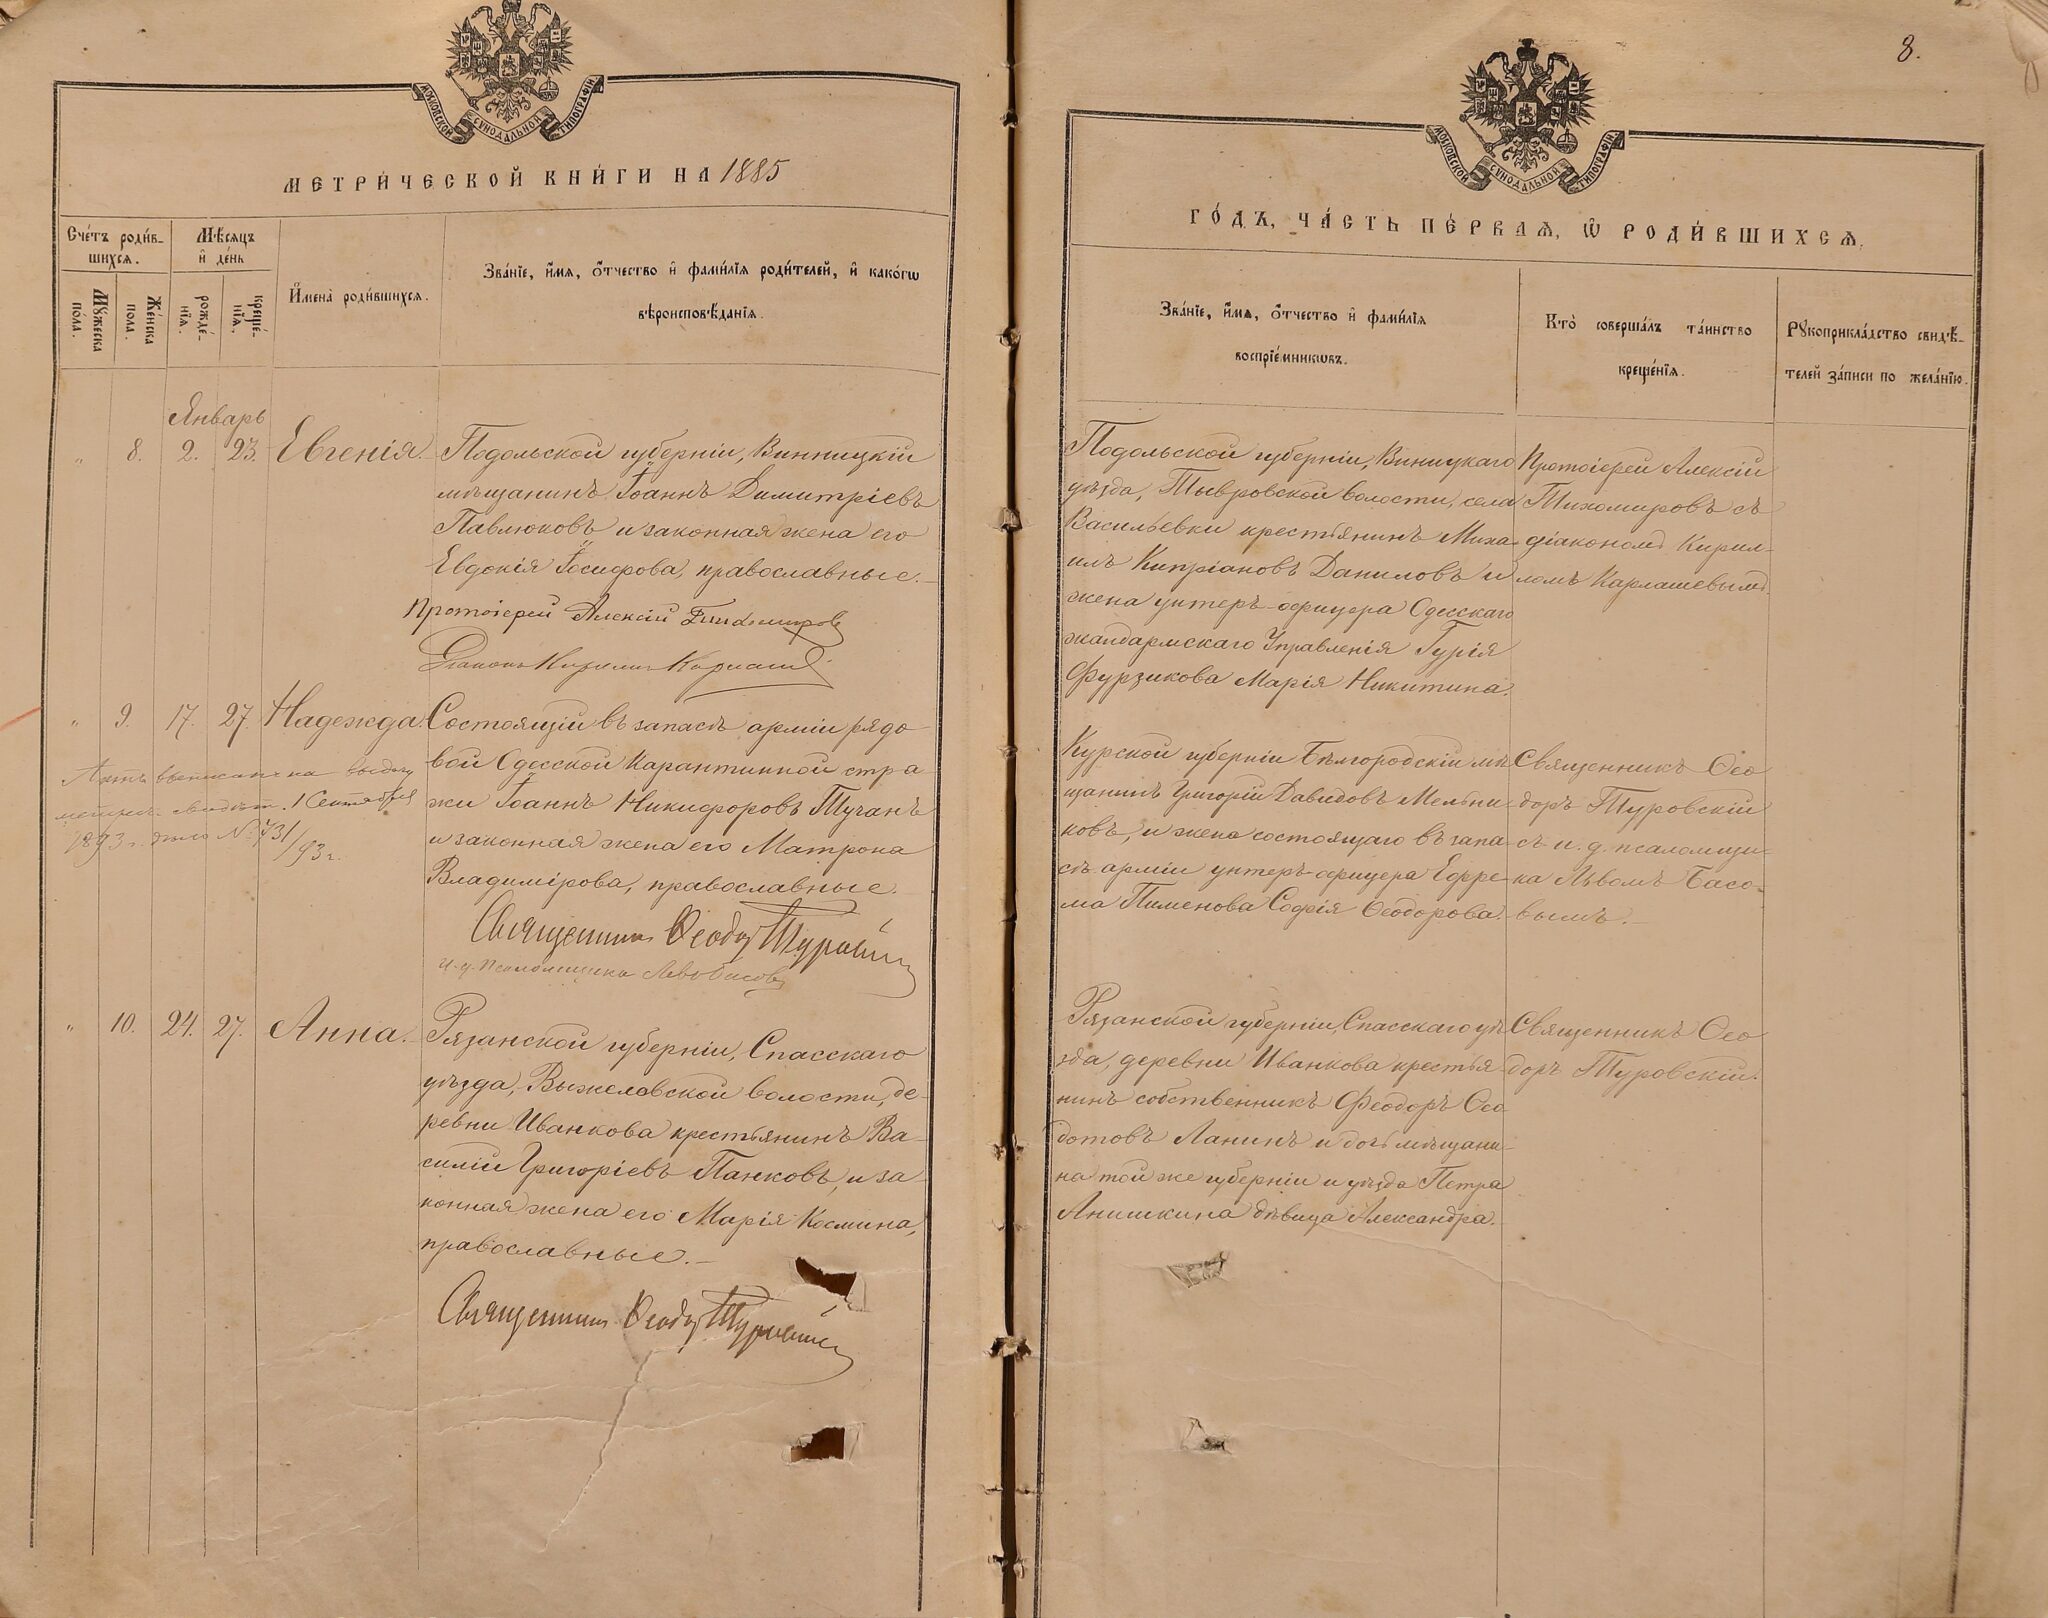 МОСКОВСКОЙ СУНОДАЛЬНОЙ ТИПОГРАФІИ
МЕТРИ́ЧЕСКОЙ КНИ́ГИ НА 1885
Сче́тъ роди́в-
шихсѧ.
Мѣ́сѧцъ
и҆ де́нь
Мꙋ́жеска
по́ла.
Же́нска
пола.
рожде́-
нїѧ.
креще́-
нїѧ.
И҆мена̀ роди́вшихсѧ.
Зва́нїе, и҆́мѧ, ѻ҆́тчество и҆ фами́лїѧ роди́телей, и҆ како́гѡ
вѣроисповѣ́данїѧ.
Январь
„ 8. 2. 23. Евгенія.
Подольской губерніи, Винницкій
мѣщанинъ Іоаннъ Димитріевъ
Павлюковъ и законная жена его
Евдокія Іосифова, православные.
Протоіерей Алексій Тихомировъ
Діаконъ Кириллъ
„ 9. 17. 27. Надежда.
Состоящій въ запасѣ арміи рядо-
вой Одесской Карантинной стра-
жи Іоаннъ Никифоровъ Тучанъ
и законная жена его Матрона
Владимірова, православные.
Священникъ Ѳеодоръ Туровскій
и. д. Псаломщика Левъ Басовъ
выписанъ на
1 Сентября
1893 г. № 731/93 г.
„ 10. 24. 27. Анна.
Рязанской губерніи, Спасскаго
уѣзда, Выжеловской волости, де-
ревни Иванкова крестьянинъ Ва-
силій Григоріевъ Панковъ, и за-
конная жена его Марія Космина,
православные.
Священникъ Ѳеодоръ Туровскій
8.
МОСКОВСКОЙ СУНОДАЛЬНОЙ ТИПОГРАФІИ
ГО́ДЪ, ЧА́СТЬ ПЕ́РВАѦ, Ѡ҆ РОДИ́ВШИХСѦ.
Зва́нїе, и҆́мѧ, ѻ҆́тчество и҆ фами́лїѧ
воспрїе́мникѡвъ.
Кто̀ соверша́лъ та́инство
креще́нїѧ.
Рꙋкоприкла́дство свидѣ́-
телей за́писи по жела́нїю.
Подольской губерніи, Виницкаго
уѣзда, Тывровской волости, села
Васильевки крестьянинъ Миха-
илъ Кипріановъ Даниловъ и
жена унтеръ-офицера Одесскаго
жандармскаго Управленія Гурія
Фурзикова Марія Никитина.
Протоіерей Алексій
Тихомировъ съ
діакономъ Кирил-
ломъ Карлашевымъ.
Курской губерніи Бѣлгородскій мѣ-
щанинъ Григорій Давидовъ Мельни-
ковъ, и жена состоящаго въ запа-
сѣ арміи унтеръ-офицера Ефре-
ма Пименова Софія Ѳеодорова.
Священникъ Ѳео-
доръ Туровскій
съ и. д. псаломщи-
ка Львомъ Басо-
вымъ.
Рязанской губерніи Спасскаго уѣ-
зда, деревни Иванкова крестья-
нинъ собственникъ Феодоръ Ѳео-
дотовъ Ланинъ и дочь мѣщани-
на той же губерніи и уѣзда Петра
Анишкина дѣвица Александра.
Священникъ Ѳео-
доръ Туровскій.